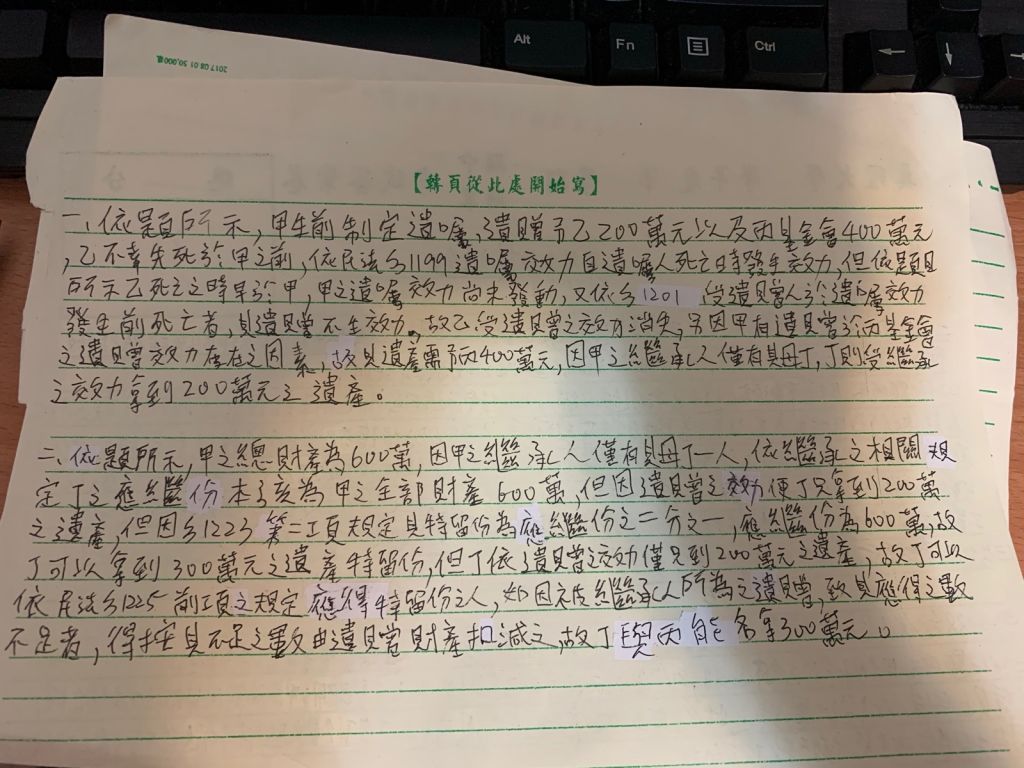 Alt
Fn
Ctrl
2017.08.01.50,000張
【轉頁從此處開始寫】
一、依題所示，甲生前制定遺囑，遺贈予乙200萬元以及丙基金會400萬元
，乙不幸先死於甲之前，依民法§1199遺囑效力自遺囑人死亡時發生效力，但依題目
所示乙死亡之時早於甲，甲之遺囑效力尚未發動，又依§1201受遺贈人於遺囑效力
發生前死亡者，其遺贈不生效力，故乙受遺贈之效力消失，另因甲有遺贈於丙基金會
之遺贈效力存在之因素，故其遺產需予丙400萬元，因甲之繼承人僅有其母丁，丁則受繼承
之效力拿到200萬元之遺產。
二、依題所示，甲之總財產為600萬，因甲之繼承人僅有其母丁一人，依繼承之相關規
定丁之應繼份本該為甲之全部財產600萬，但因遺贈之效力使丁只拿到200萬
之遺產，但因§1223第二項規定其特留份為應繼份之二分之一，應繼份為600萬，故
丁可以拿到300萬元之遺產特留份，但丁依遺贈之效力僅只到200萬元之遺產，故丁可以
依民法§1225前項之規定應得特留份之人，如因被繼承人所為之遺贈，致其應得之數
不足者，得按其不足之數由遺贈財產扣減之，故丁與丙能各拿300萬元。